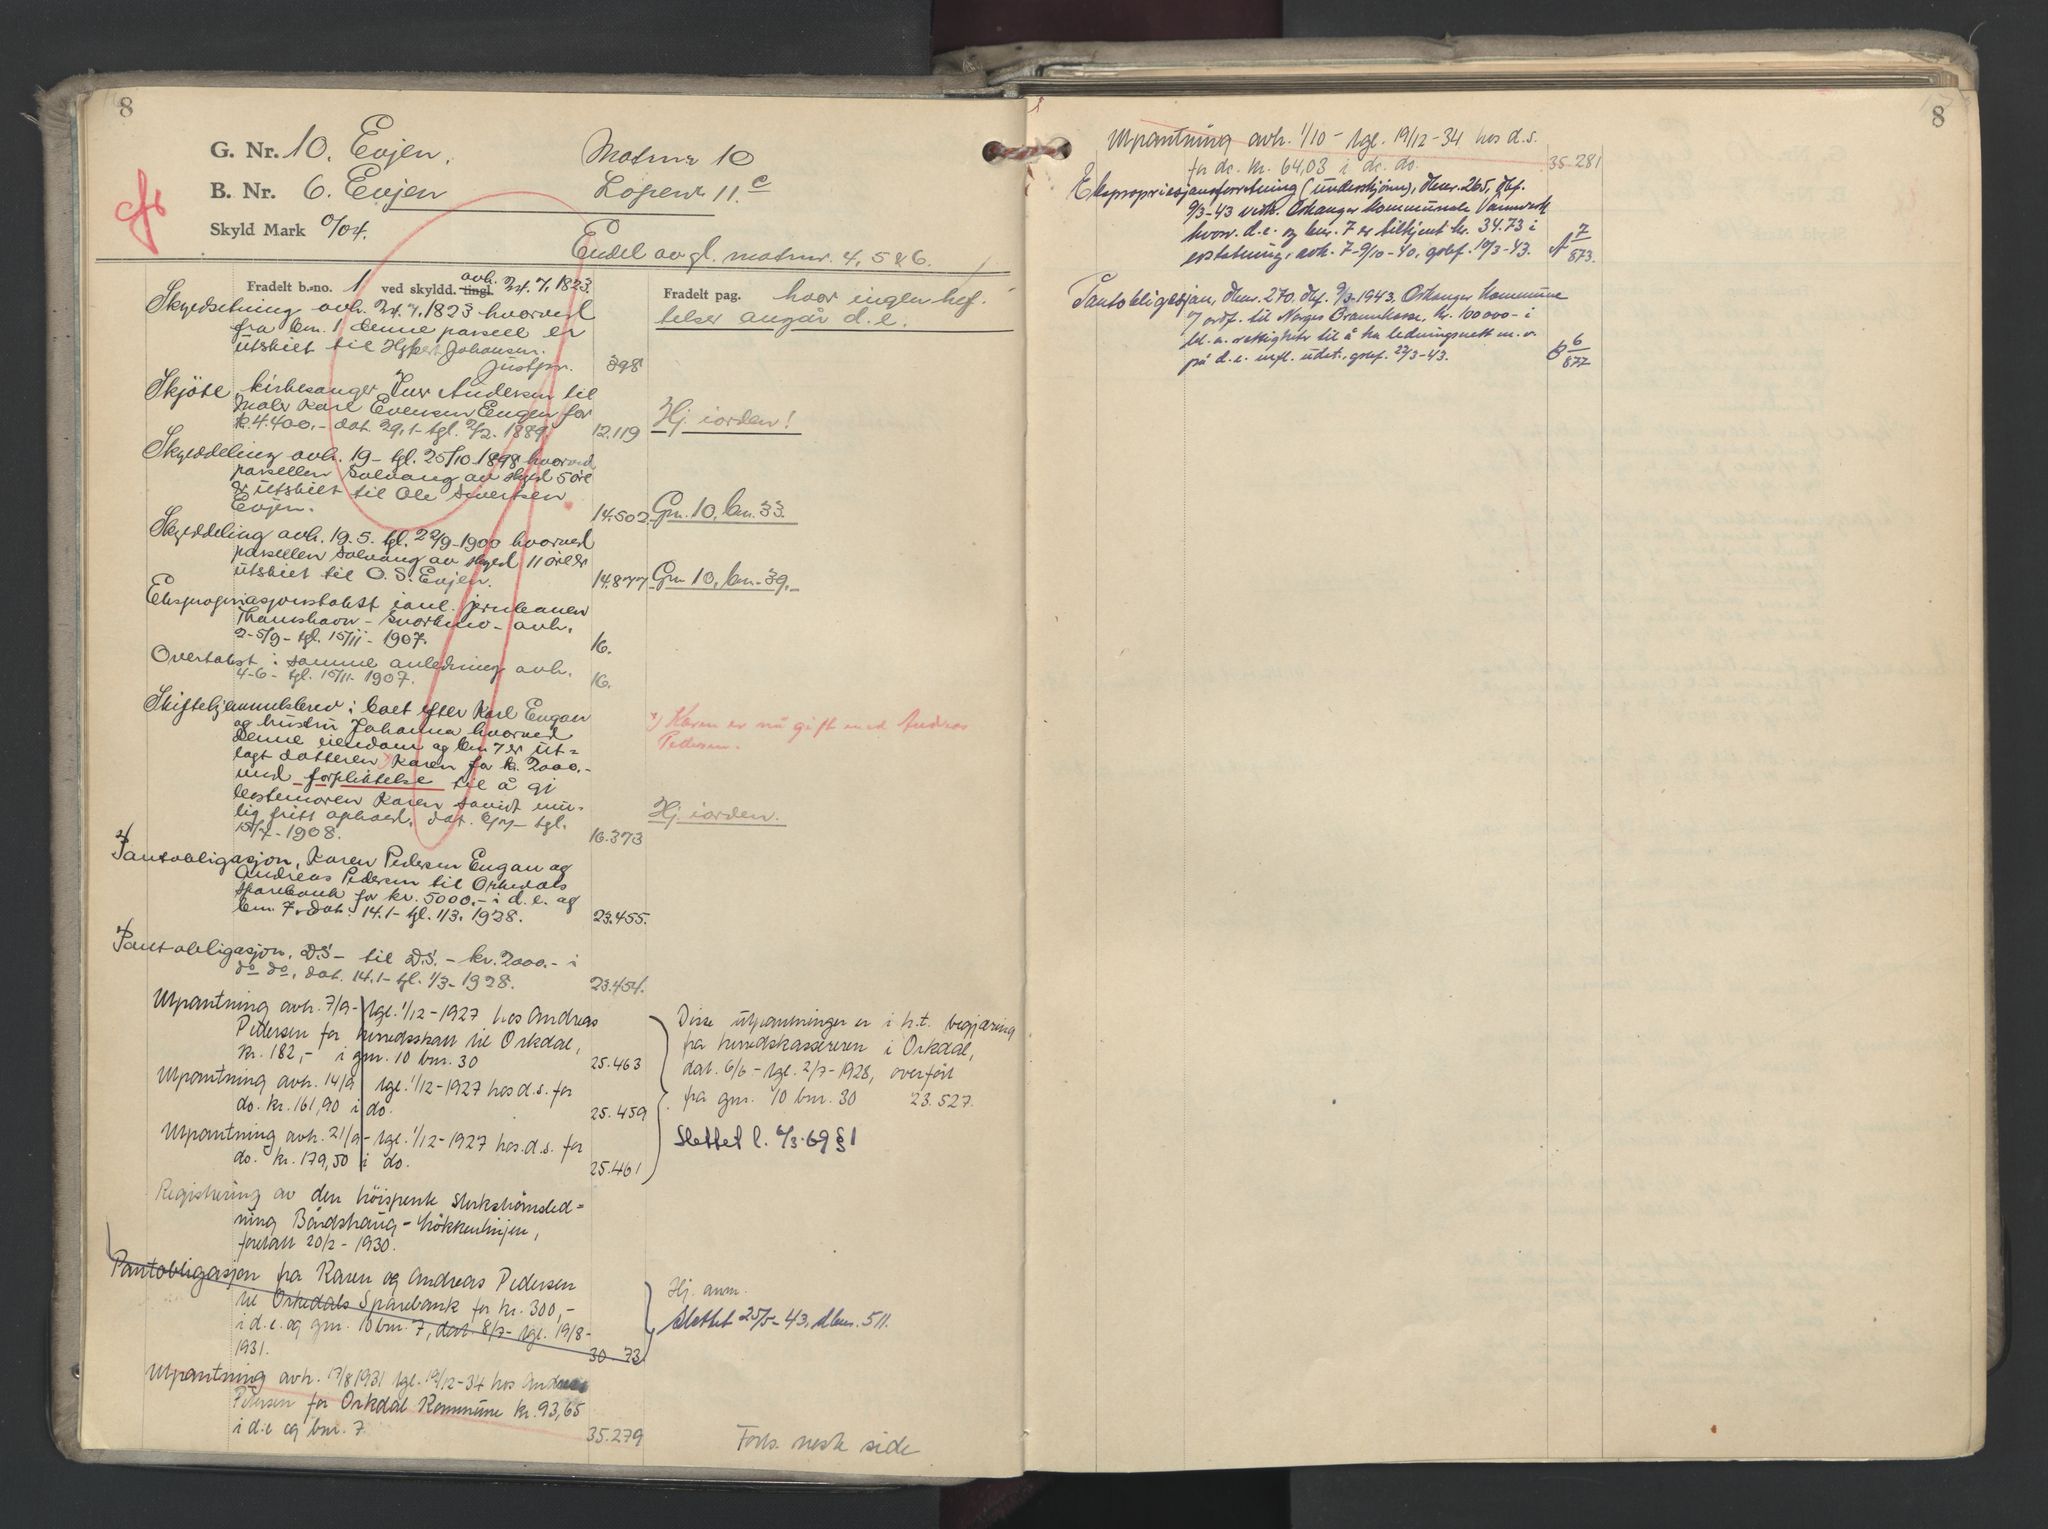 8
G. Nr. 10. Evjen.
Matrnr 10
B. Nr. 6. Evjen
Löpenr 11.c
Skyld Mark 0/04.
Endel av gl. matrnr. 4, 5 & 6.
Fradelt b.-no. 1 ved skyldd. tingl. avh. 24.7.1823.
Fradelt pag. hvor ingen hef-
telser angår d.e.
Skyldsetning avh. 24.7.1823 hvorved
fra bnr. 1 denne parsell er
utskilt til Johansen.
Justpr. 398
Skjöte, kirkesanger Iver Andersen til
Maler Karl Evensen Engen for
kr. 4.400,- dat. 29.1- tgl. 2/2. 1889. 12.119
Hj. iorden!
Skylddeling avh. 19- tgl. 25/10-1898 hvorved
parsellen Solvang av skyld 5 öre
er utskilt til Ole Sivertsen
Evjen. 14.502
Gnr. 10, bnr. 33.
Skylddeling avh. 19.5. tgl. 22/9-1900 hvorved
parsellen Solvang av skyld 11 öre er
utskilt til O. S. Evjen. 14.877
Gnr 10, bnr. 39.-
Ekspropriasjonstakst i anl. jernbanen
Thamshavn - Svorkmo - avh.
2-5/9- tgl. 15/11- 1907. 16.
Overtakst i samme anledning avh.
4-6- tgl. 15/11- 1907. 16.
Skiftehjemmelsbrev i boet efter Karl Engan
og hustru Johanna hvorved
denne eiendom og bnr 7 er ut-
lagt datteren x) Karen for kr. 2000.-
med forpliktelse til å gi
bestemoren Karen såvidt mu-
lig fritt ophold, dat. 6/7- tgl.
15/7-1908. 16.373
x) Karen er nu gift med Andreas
Pedersen.
Hj. iorden.
Pantobligasjon, Karen Pedersen Engan og
Andreas Pedersen til Orkedals
Sparebank for kr. 5000.- i d.e. og
bnr. 7. dat. 14.1- tgl. 1/3. 1928. 23.455.
Pantobligasjon, D.S- til D.S. - kr. 2000.- i
do do, dat. 14.1- tgl. 1/3-1928. 23.454.
Utpantning avh. 7/9- tgl. 1/12-1927 hos Andreas
Pedersen for herredsskatt til Orkdal,
kr. 182,- i gnr. 10 bnr. 30 25.463
Utpantning avh. 14/9 tgl. 1/12-1927 hos d.s. for
do. kr. 161,90 i do. 25.459
Utpantning avh. 21/9- tgl. 1/12-1927 hos d.s. for
do. kr. 179,50 i do. 25.461
Disse utpantninger er i h.t. begjæring
fra herredskassereren i Orkdal,
dat. 6/6- tgl. 2/7-1928, overfört
fra gnr. 10 bnr. 30 23.527.
Slettet l. 6/3-69 § 1
Registrering av den höispente sterkströmsled-
ning Bårdshaug - Lökkenlinjen,
foretatt 20/2-1930.
Pantobligasjon fra Karen og Andreas Pedersen
til Orkedals Sparebank for kr. 300,-
i d.e. og gnr. 10 bnr. 7, dat. 8/7- tgl. 19/8-
1931. 30.73
Hj. anm.
Slettet 25/5-43, dbnr. 511.
Utpantning avh. 17/8 1931 tgl. 19/12-34 hos Andreas
Pedersen for Orkdal Kommune kr. 93,65
i d.e og bnr. 7. 35.279
Forts. neste side
8
Utpantning avh. 1/10- tgl. 19/12-34 hos d.s.
for do. kr. 64,03 i do. do. 35.281
Ekspropriasjonsforretning (underskjönn), dbnr. 265, dbf.
9/3-43 vedk. Orkanger kommunale Vannverk
hvorv. d.e. og bnr. 7 er tilkjent kr. 34.73 i
erstatning, avh. 7-9/10-40, godkj. 10/3-43. A 7/873.
Pantobligasjon, dbnr. 270, dbf. 9/3-1943. Orkanger Kommune
v/ ordf. til Norges Brannkasse, kr. 100000- i
bl. a. rettigheter til å ha ledningsnett m.v.
på d.e. mfl. udat., godkj. 22/3-43. B 6/877